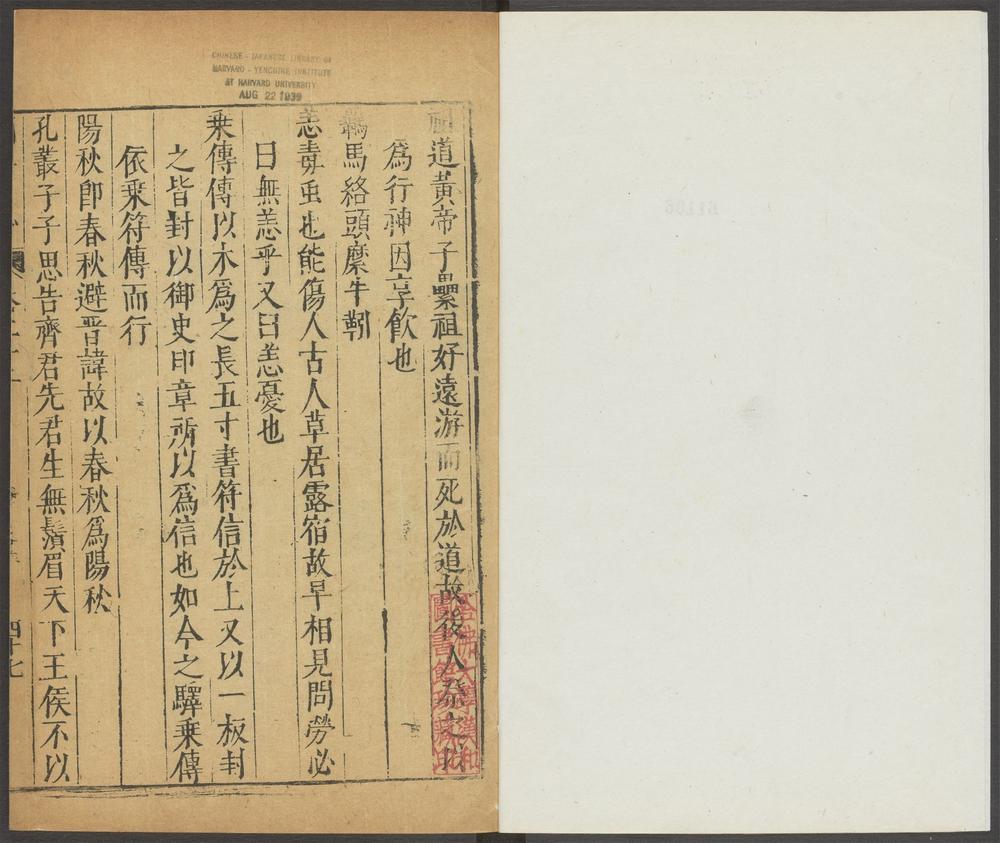 CHINESE - JAPANESE LIBRARY OF
HARVARD - YENCHING INSTITUTE
AT HARVARD UNIVERSITY
AUG 22 1939
祖道黃帝子纍祖好遠游而死於道故後人祭之以
為行神因享飲也
羈馬絡頭縻牛靷
恙毒虫也能傷人古人草居露宿故早相見問勞必
曰無恙乎又曰恙憂也
乗傳傳以木爲之長五寸書符信於上又以一板封
之皆封以御史印章所以爲信也如今之驛乗傳
依乗符傳而行
陽秋即春秋避晋諱故以春秋爲陽秋
孔叢子子思告齊君先君生無鬚眉天下王侯不以
四十七
哈佛大學漢和
圖書館珍藏印